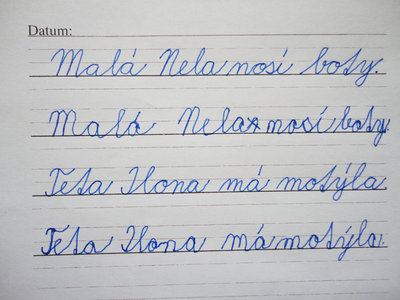 Datum:
Malá Nela nosí boty.
Malá Nela nosí boty.
Teta Ilona má motýla.
Teta Ilona má motýla.